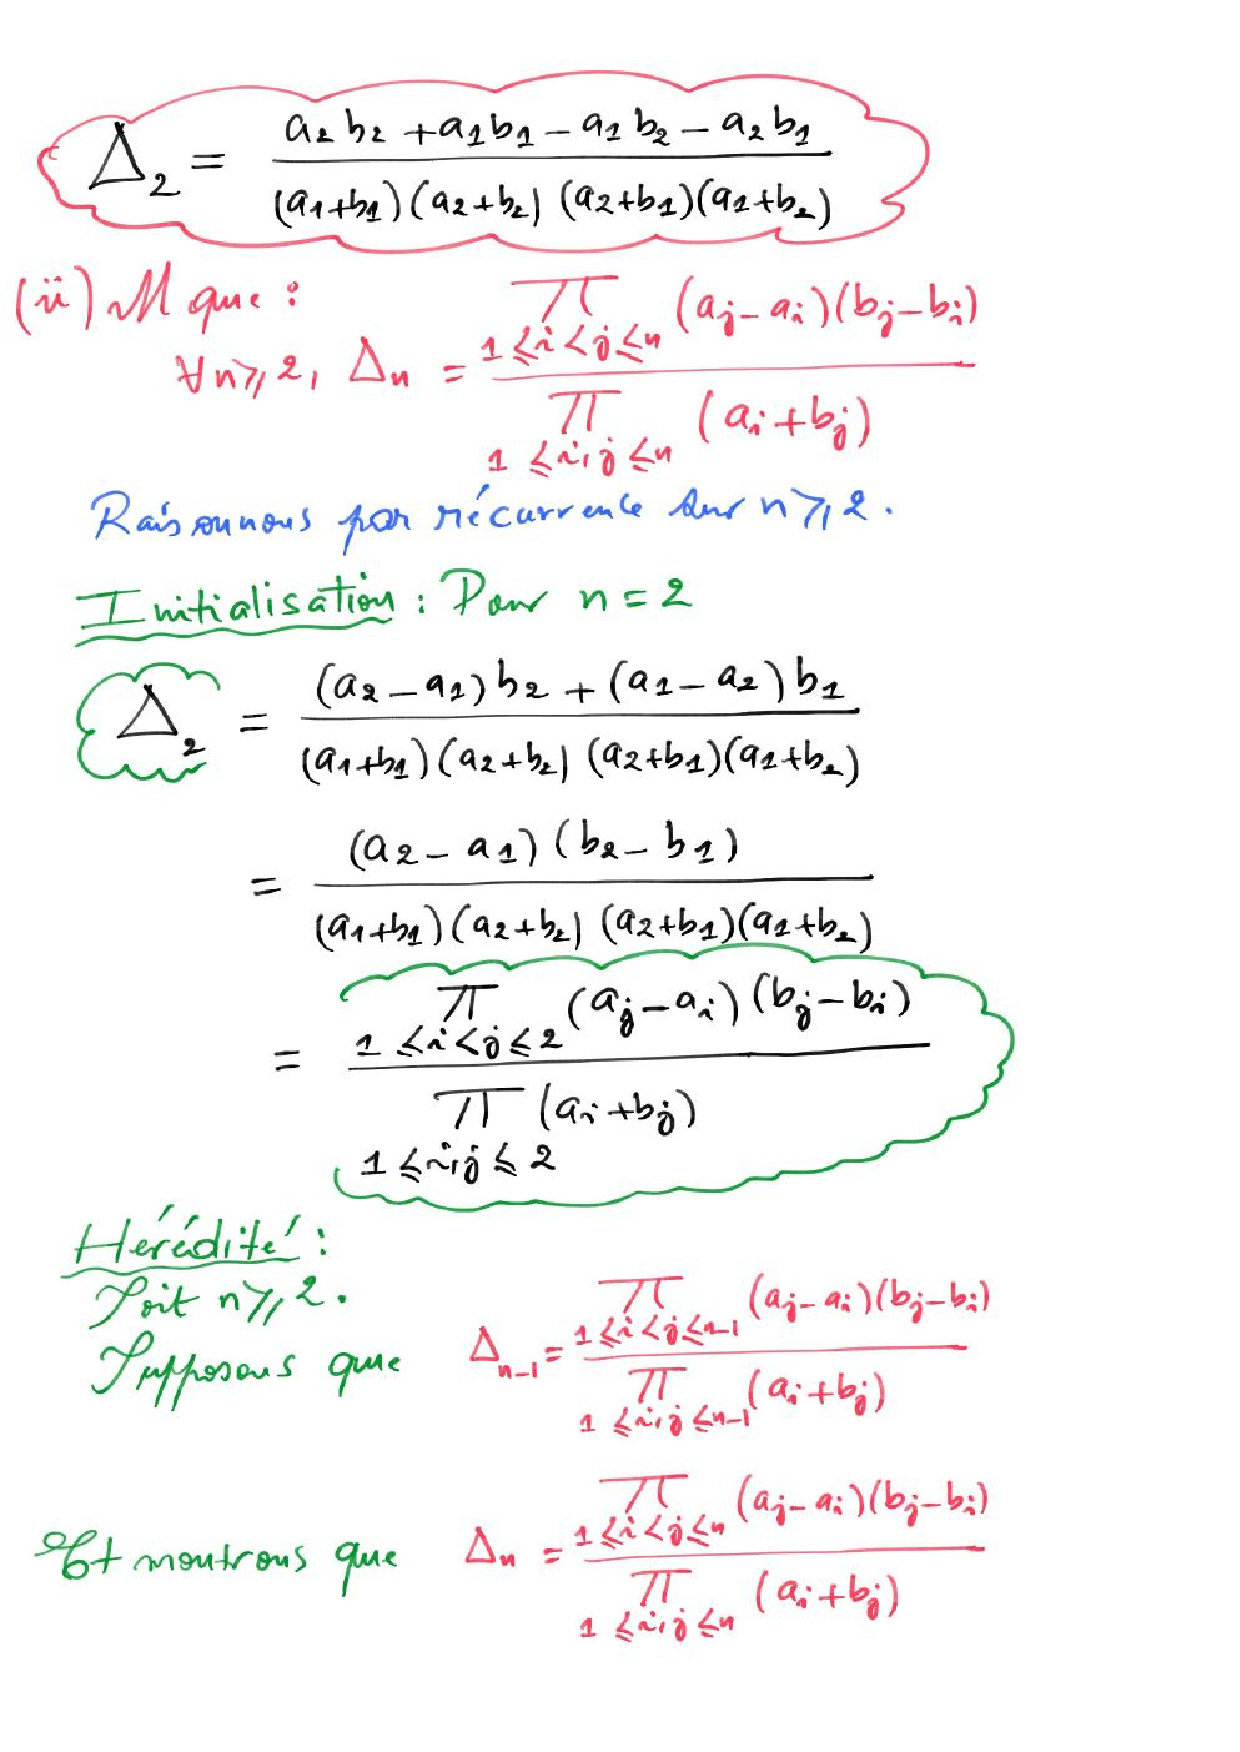 Δ₂ = (a₂b₂ + a₁b₁ − a₁b₂ − a₂b₁) / ((a₁+b₁)(a₂+b₂)(a₂+b₁)(a₁+b₂))
(ii) M que :
∀n⩾2, Δₙ = ∏_{1⩽i<j⩽n} (aⱼ − aᵢ)(bⱼ − bᵢ) / ∏_{1⩽i,j⩽n} (aᵢ + bⱼ)
Raisonnons par récurrence sur n⩾2.
Initialisation : Pour n = 2
Δ₂ = ((a₂ − a₁)b₂ + (a₁ − a₂)b₁) / ((a₁+b₁)(a₂+b₂)(a₂+b₁)(a₁+b₂))
= (a₂ − a₁)(b₂ − b₁) / ((a₁+b₁)(a₂+b₂)(a₂+b₁)(a₁+b₂))
= ∏_{1⩽i<j⩽2} (aⱼ − aᵢ)(bⱼ − bᵢ) / ∏_{1⩽i,j⩽2} (aᵢ + bⱼ)
Hérédité :
Soit n⩾2.
Supposons que Δₙ₋₁ = ∏_{1⩽i<j⩽n−1} (aⱼ − aᵢ)(bⱼ − bᵢ) / ∏_{1⩽i,j⩽n−1} (aᵢ + bⱼ)
Et montrons que Δₙ = ∏_{1⩽i<j⩽n} (aⱼ − aᵢ)(bⱼ − bᵢ) / ∏_{1⩽i,j⩽n} (aᵢ + bⱼ)